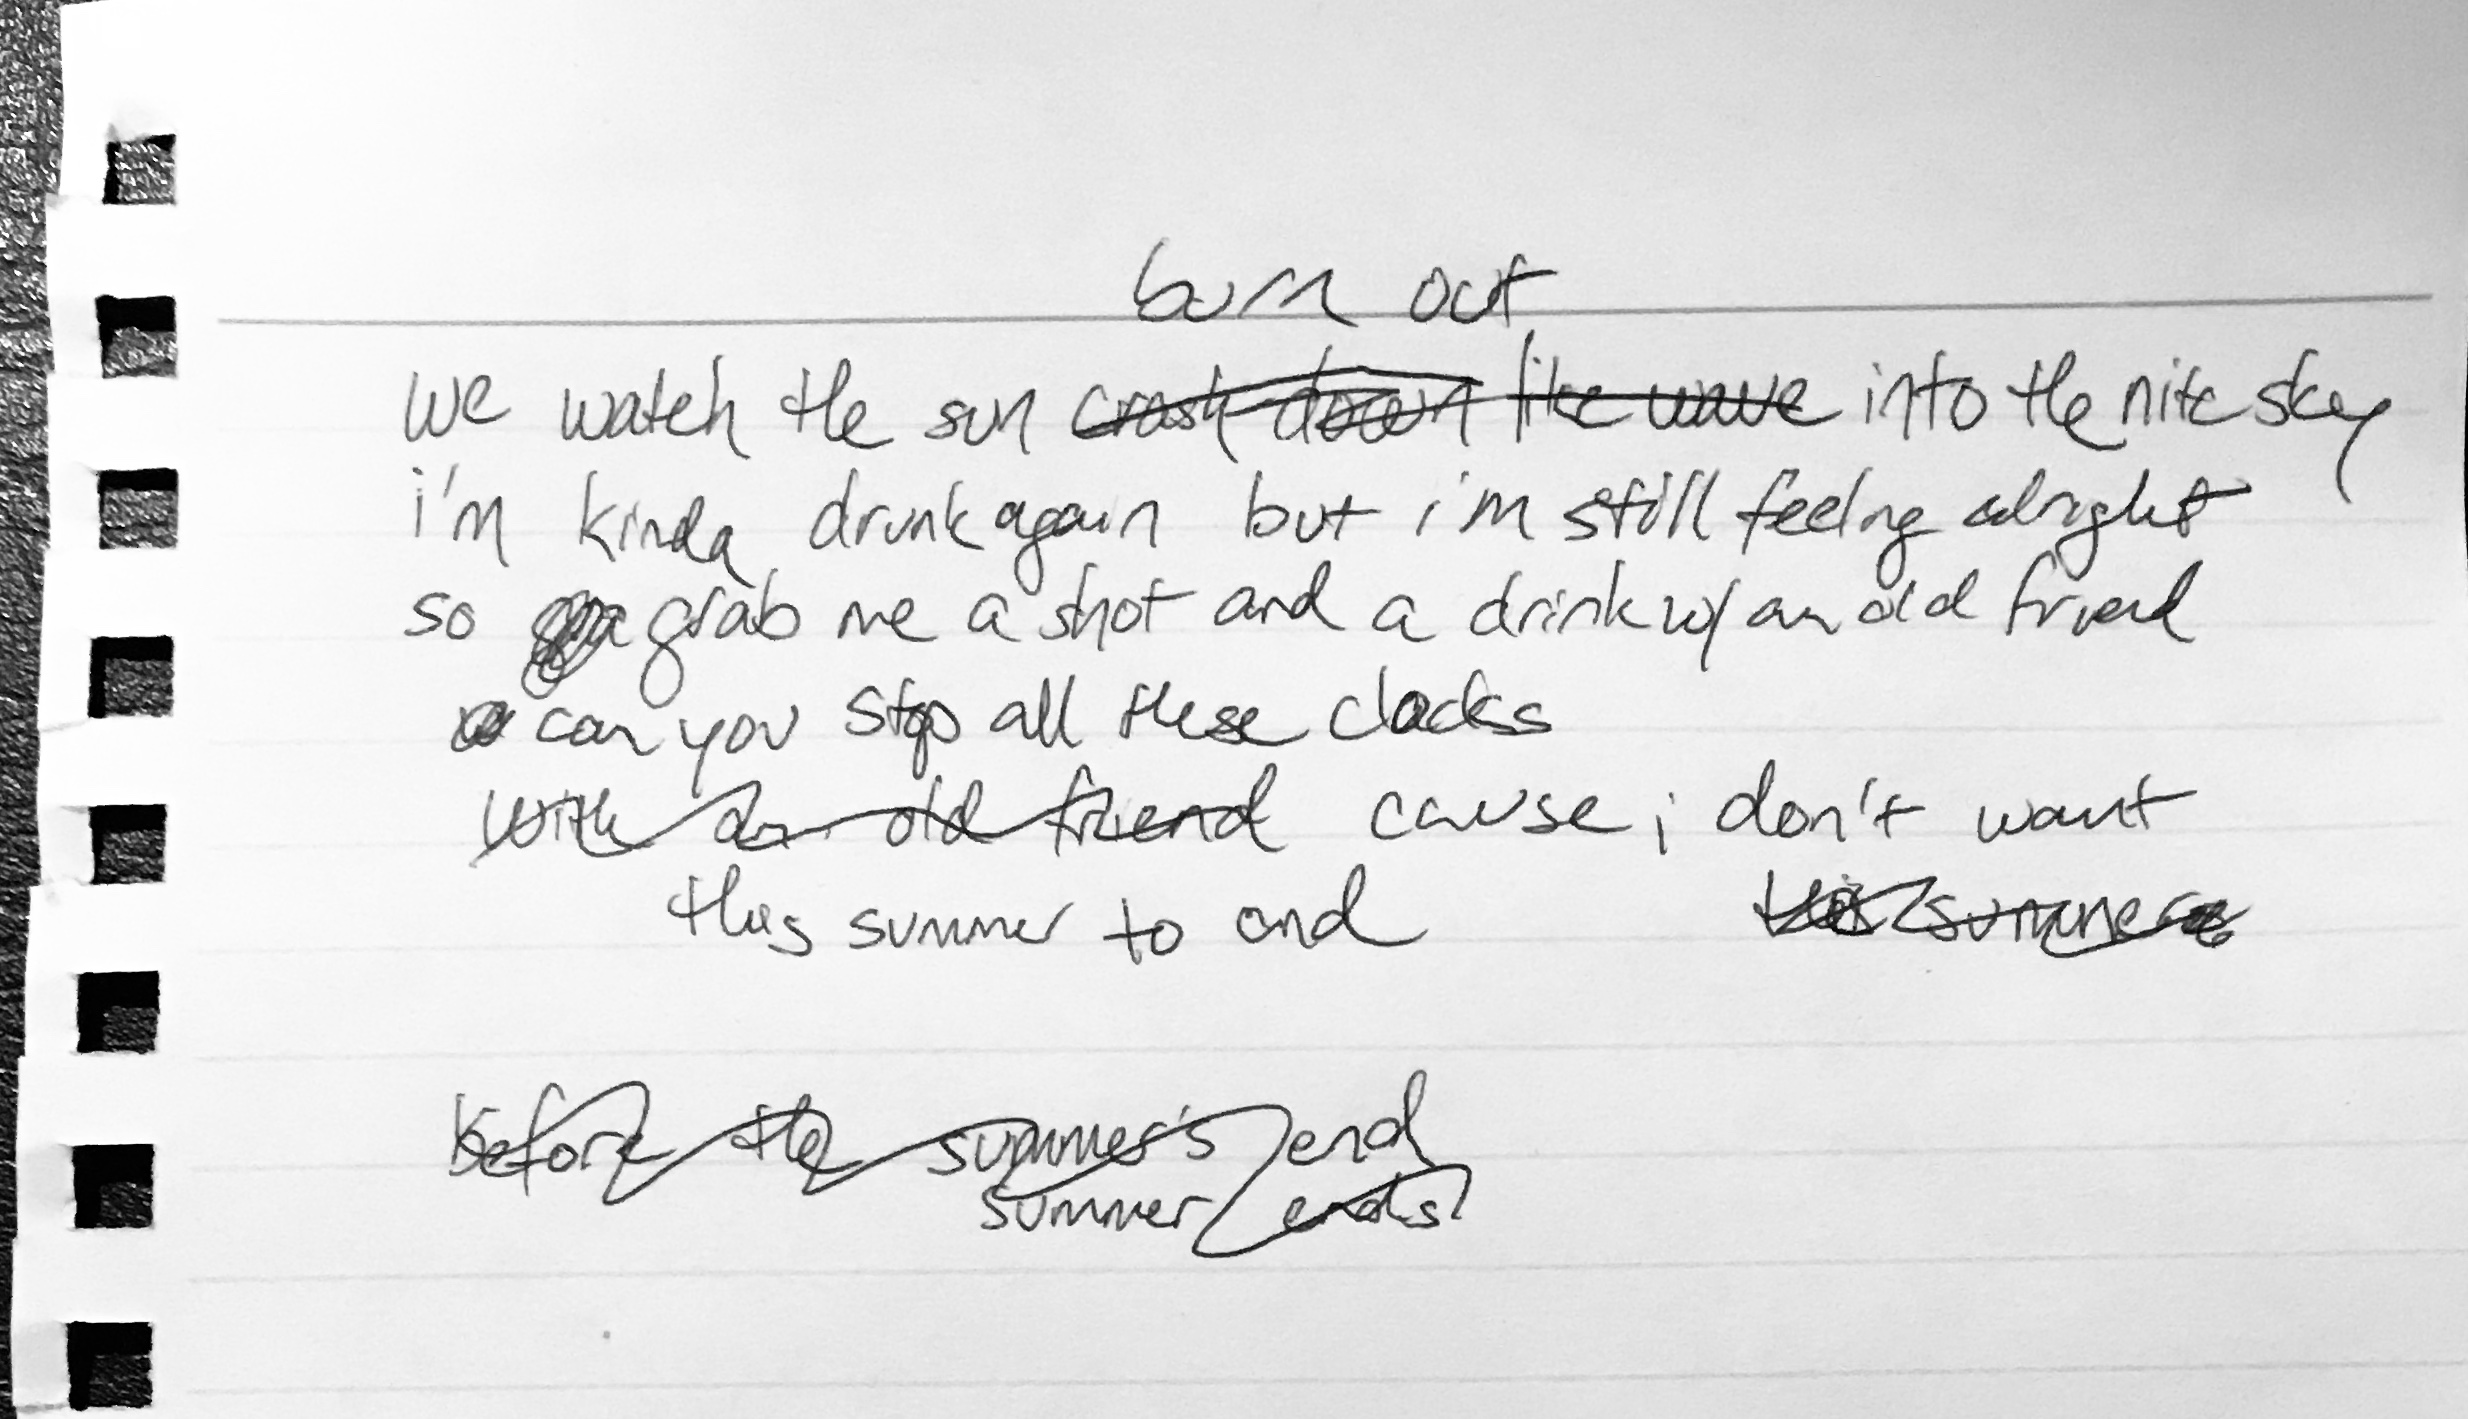 burn out
we watch the sun crash down like wave into the nite sky
i'm kinda drunk again but i'm still feeling alright
so grab me a shot and a drink w/ an old friend
can you stop all these clocks
with an old friend cause i don't want
this summer to end this summer
before the summer's end
summer ends